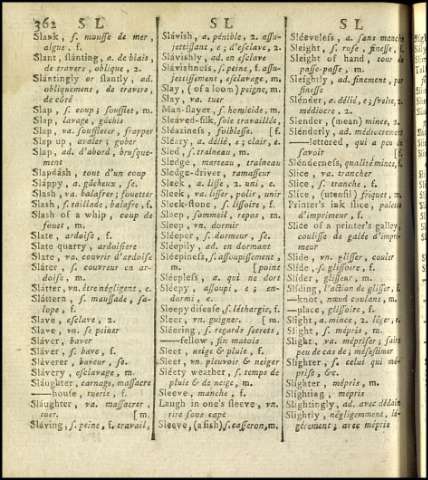 362 S L
S L
S L
Slank, f. mousse de mer,
algue, f.
Slant, slánting, a. de biais,
de travers, oblique, 2.
Slántingly or slantly, ad.
obliquement, de travers,
de côté
Slap, f. coup; soufflet, m.
Slap, lavage, gâchis
Slap, va. souffleter, frapper
Slap up, avaler; gober
Slap, ad. d'abord, brusque-
ment
Slapdash, tout d'un coup
Sláppy, a. gâcheux, se.
Slash, va. balafrer; fouetter
Slash, f. taillade, balafre, f.
Slash of a whip, coup de
fouet, m.
Slate, ardoise, f.
Slate quarry, ardoisiere
Slate, va. couvrir d'ardoise
Sláter, f. couvreur en ar-
doise, m.
Slátter, vn. être négligent, e.
Sláttern, f. maussade, sa-
lope, f.
Slave, esclave, 2.
Slave, vn. se peiner
Sláver, baver
Sláver, f. bave, f.
Sláverer, baveur, se.
Slávery, esclavage, m.
Sláughter, carnage, massacre
—house, tuerie, f.
Sláughter, va. massacrer,
tuer, [m.
Sláving, f. peine, f. travail,
Slávish, a. pénible, 2. assu-
jettissant, e; d'esclave, 2.
Slávishly, ad. en esclave
Slávishness, f. peine, f. assu-
jettissement, esclavage, m.
Slay, (of a loom) peigne, m.
Slay, va. tuer
Man-slayer, f. homicide, m.
Sleaved-silk, soie travaillée,
Sléaziness, foiblesse, f.
Sléazy, a. délié, e; clair, e.
Sled, f. traîneau, m.
Sledge, marteau, traîneau
Sledge-driver, ramasseur
Sleek, a. lisse, 2. uni, e.
Sleek, va. lisser, polir, unir
Sleek-stone, f. lissoire, f.
Sleep, sommeil, repos, m.
Sleep, vn. dormir
Sléeper, f. dormeur, se.
Sléepily, ad. en dormant
Sléepiness, f. assoupissement,
m. [point
Sléepless, a. qui ne dort
Sléepy, assoupi, e; en-
dormi, e.
Sleepy disease, f. léthargie, f.
Sleer, vn. guigner, [m.
Sléering, f. regards secrets,
—fellow, fin matois
Sleet, neige & pluie, f.
Sleet, vn. pleuvoir & neiger
Sléety weather, f. temps de
pluie & de neige, m.
Sleeve, manche, f.
Laugh in one's sleeve, vn.
rire sous cape
Sleeve, (a fish) f. casseron, m.
Sléeveless, a. sans manche
Sleight, f. ruse, finesse, f.
Sleight of hand, tour de
passe-passe, m.
Sléightly, ad. finement, par
finesse
Slénder, a. délié, e; svelte, 2.
médiocre, 2.
Slender, (mean) mince, 2.
Slénderly, ad. médiocrement
—lettered, qui a peu de
savoir [f.
Slénderness, qualité mince, f.
Slice, va. trancher
Slice, f. tranche, f.
Slice, (utensil) friquet, m.
Printer's ink slice, palette
d'imprimeur, f.
Slice of a printer's galley,
coulisse de galée d'impri-
meur
Slide, vn. glisser, couler
Slide, f. glissoire, f.
Slider, glisseur, m.
Slíding, l'action de glisser, f.
—knot, nœud coulant, m.
—place, glissoire, f.
Slight, a. mince, 2. léger, e.
Slight, f. mépris, m.
Slight, va. mépriser; faire
peu de cas de; mésestimer
Slighter, f. celui qui mé-
prise, &c.
Slighter, mépris, m.
Slighting, mépris
Slightingly, ad. avec dédain
Slightly, négligemment, lé-
gèrement, avec mépris